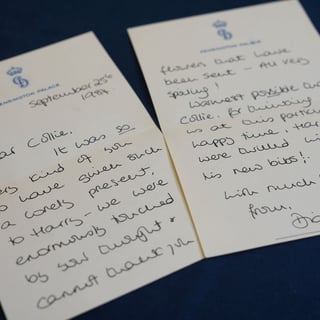 KENSINGTON PALACE
September 25th
1984.
ar Collie,
It was so
very kind of you
to have given such
a lovely present,
to Harry – we were
enormously touched
by your thought &
cannot thank you
KENSINGTON PALACE
flowers that have
been sent – All very
spoiling!
Warmest possible
Collie, for thinking
us at this particu
happy time, Har
were thrilled wi
his new bibs!.
With much
from,